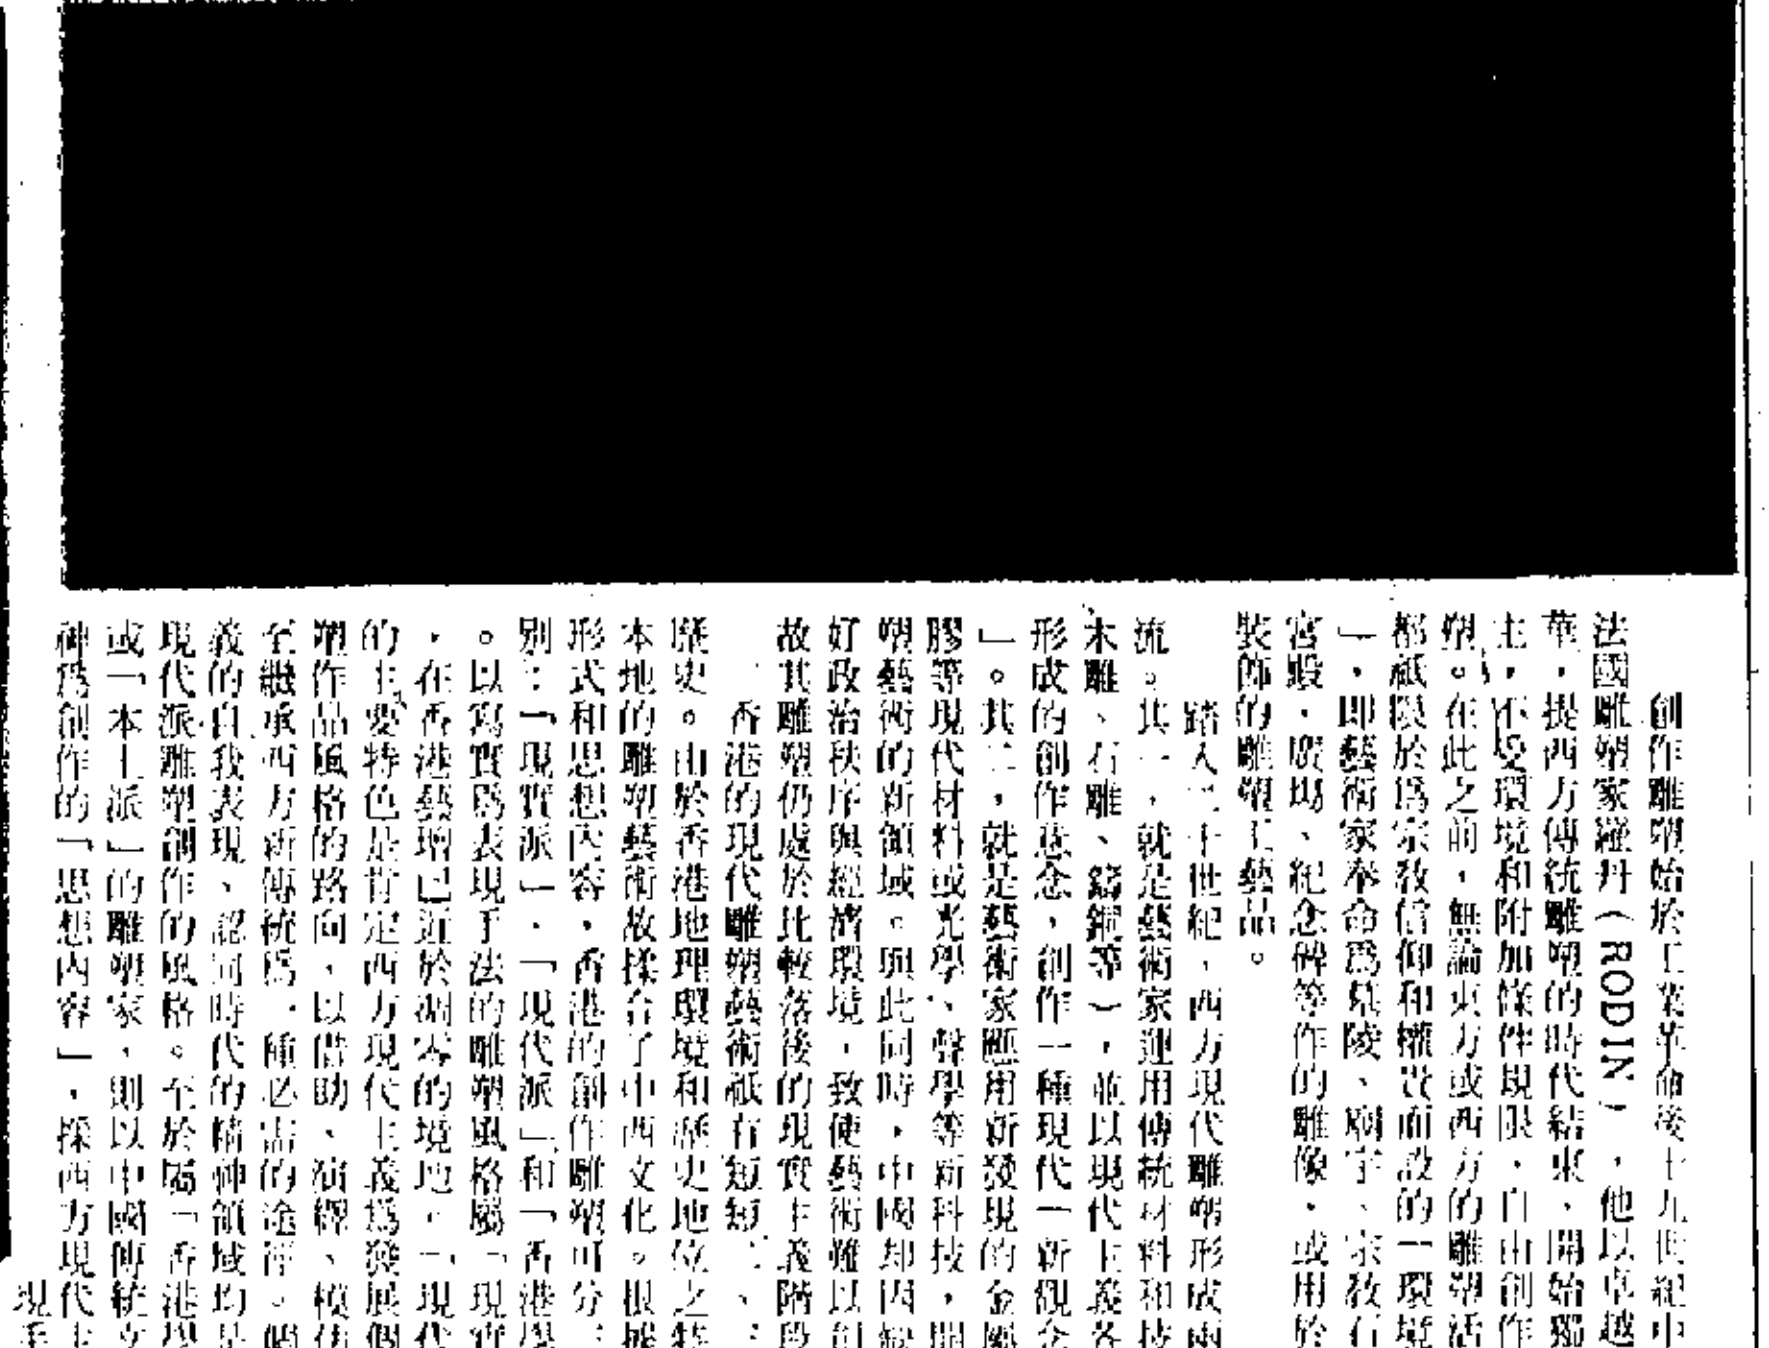 創作雕塑始於工業革命後十九世紀中
法國雕塑家羅丹（RODIN），他以卓越
華，提西方傳統雕塑的時代結束、開始獨
主，不受環境和附加條件規限，自由創作
塑。在此之前，無論東方或西方的雕塑活
都祇限於爲宗教信仰和權貴而設的一環境
」，即藝術家奉命爲墓陵、廟宇、宗教石
宮殿，廣場、紀念碑等作的雕像，或用於
裝飾的雕塑工藝品。
踏入二十世紀，西方現代雕塑形成兩
流。其一，就是藝術家運用傳統材料和技
木雕、石雕、鑄銅等），並以現代主義各
形成的創作意念，創作一種現代一新觀念
」。其二，就是藝術家應用新發現的金屬
膠等現代材料或光學、聲學等新科技，開
塑藝術的新領域。與此同時，中國却因缺
好政治秩序與經濟環境，致使藝術難以創
故其雕塑仍處於比較落後的現實主義階段
香港的現代雕塑藝術祇有短短二、三
歷史。由於香港地理環境和歷史地位之特
本地的雕塑藝術故揉合了中西文化。根據
形式和思想內容，香港的創作雕塑可分三
別：「現實派」、「現代派」和「香港學
。以寫實爲表現手法的雕塑風格屬「現實
，在香港藝壇已近於凋零的境地。「現代
的主要特色是肯定西方現代主義爲發展個
塑作品風格的路向，以借助、演繹、模仿
至繼承西方新傳統爲一種必需的途徑。個
義的自我表現、認同時代的精神領域均是
現代派雕塑創作的風格。至於屬「香港學
或「本土派」的雕塑家，則以中國傳統文
神爲創作的「思想內容」，採西方現代主
現手